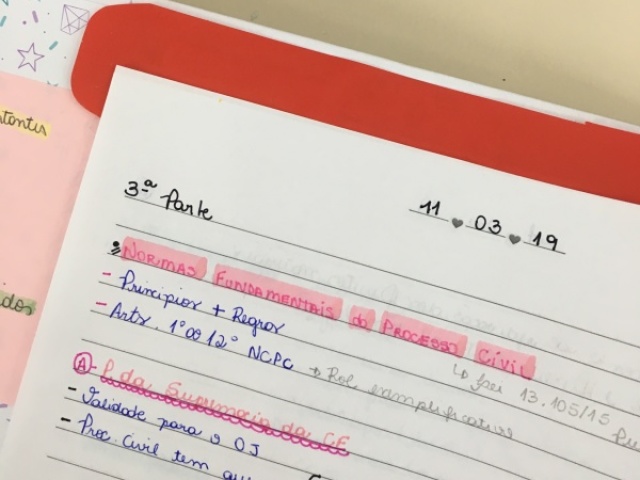 3ª Parte
11 03 19
Normas Fundamentais do Processo Civil
- Princípios + Regras
↳ Lei 13.105/15
- Arts. 1º ao 12º NCPC → Rol exemplificativo
A - P. da Supremacia da CF
- Validade para o OJ
- Proc. Civil tem que
dos